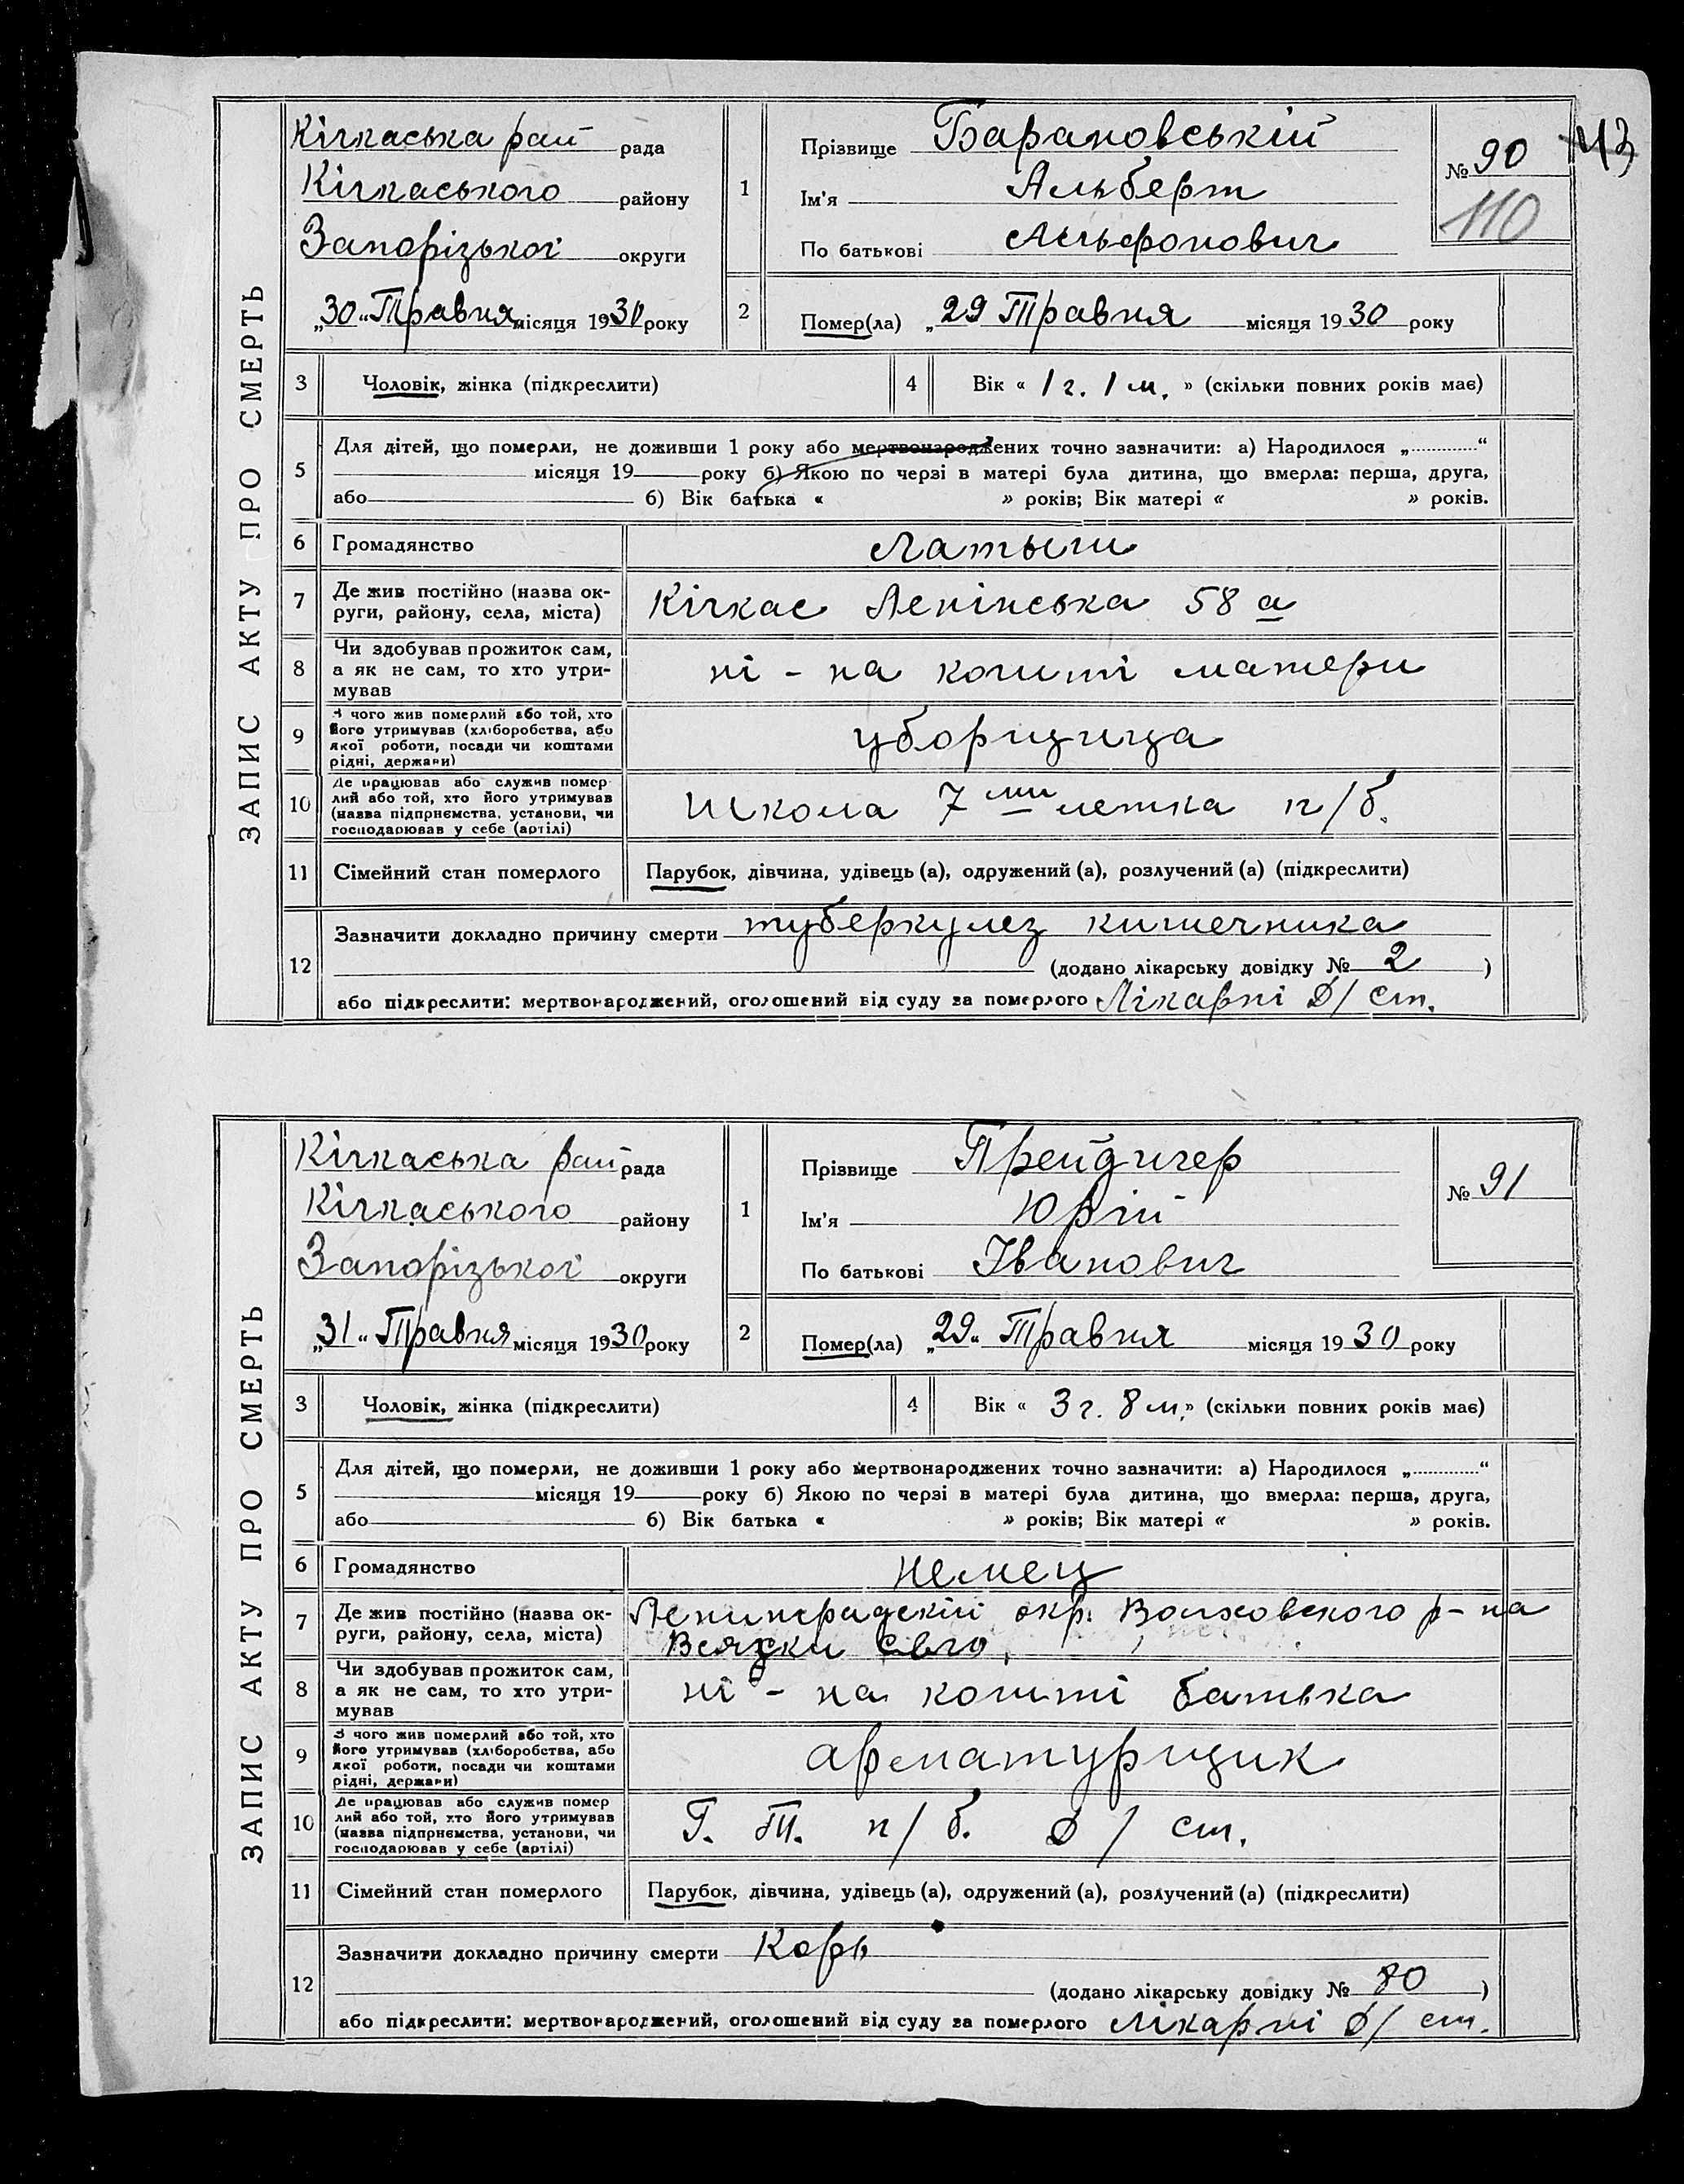 ЗАПИС АКТУ ПРО СМЕРТЬ
Кічкаська рай рада
Кічкаського району
Запорізької округи
„30“ Травня місяця 1930 року
1
Прізвище Барановський
Ім'я Альберт
По батькові Альфонович
№ 90
43
110
2
Помер(ла) „29 Травня місяця 1930 року
3 Чоловік, жінка (підкреслити)
4 Вік « 1 г. 1 м. » (скільки повних років має)
5
Для дітей, що померли, не доживши 1 року або мертвонароджених точно зазначити: а) Народилося „............“
місяця 19 року б) Якою по черзі в матері була дитина, що вмерла: перша, друга,
або б) Вік батька « » років; Вік матері « » років.
6 Громадянство Латыш
7 Де жив постійно (назва ок-
руги, району, села, міста)
Кічкас Ленінська 58 а
8 Чи здобував прожиток сам,
а як не сам, то хто утри-
мував
ні - на кошті матери
9 З чого жив померлий або той, хто
його утримував (хліборобства, або
якої роботи, посади чи коштами
рідні, держави)
уборщица
10 Де працював або служив помер-
лий або той, хто його утримував
(назва підприємства, установи, чи
господарював у себе (артілі)
Школа 7 ми летка п/б.
11 Сімейний стан померлого Парубок, дівчина, удівець (а), одружений (а), розлучений (а) (підкреслити)
12
Зазначити докладно причину смерти туберкулез кишечника
(додано лікарську довідку № 2 )
або підкреслити: мертвонароджений, оголошений від суду за померлого Лікарні Д/ ст.
ЗАПИС АКТУ ПРО СМЕРТЬ
Кічкаська рай рада
Кічкаського району
Запорізької округи
„31“ Травня місяця 1930 року
1
Прізвище
Ім'я Юрій
По батькові Іванович
№ 91
2
Помер(ла) „29“ Травня місяця 1930 року
3 Чоловік, жінка (підкреслити)
4 Вік « 3 г. 8 м.» (скільки повних років має)
5
Для дітей, що померли, не доживши 1 року або мертвонароджених точно зазначити: а) Народилося „............“
місяця 19 року б) Якою по черзі в матері була дитина, що вмерла: перша, друга,
або б) Вік батька « » років; Вік матері « » років.
6 Громадянство немец
7 Де жив постійно (назва ок-
руги, району, села, міста)
Ленинградскій окр. Волховского р-на
8 Чи здобував прожиток сам,
а як не сам, то хто утри-
мував
ні - на кошті батька
9 З чого жив померлий або той, хто
його утримував (хліборобства, або
якої роботи, посади чи коштами
рідні, держави)
арматурщик
10 Де працював або служив помер-
лий або той, хто його утримував
(назва підприємства, установи, чи
господарював у себе (артілі)
Г. Т. п/б. Д/ ст.
11 Сімейний стан померлого Парубок, дівчина, удівець (а), одружений (а), розлучений (а) (підкреслити)
12
Зазначити докладно причину смерти Корь
(додано лікарську довідку № 80 )
або підкреслити: мертвонароджений, оголошений від суду за померлого Лікарні Д/ ст.